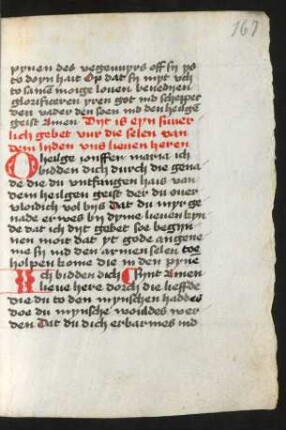 167
pynen des vegevuyrs off sy ys
to doyn hait Op dat sy myt uch
to same moige loven benedyen
glorificeren yren got ind schepper
den vader den soen ind den heilgē
geist Amen. Dyt is eyn suver
lich gebet vur die selen van
dem lyden uns lieven heren
O heilge jonffer maria ich
bidden dich durch die gena
de die du untfangen hais van
dem heilgen geist der du over
vloidich vol bys Dat du myr ge
nade erwes by dyme lieven kyn
de dat ich dyt gebet soe begyn
nen moit dat yt gode angene
me sy ind den armen selen toe
holpen kome die in den pyne
Ich bidden dich synt Amen
lieve here dorch die lieffde
die du to den mynschen haddes
doe du mynsche woildes wer
den Dat du dich erbarmes ind